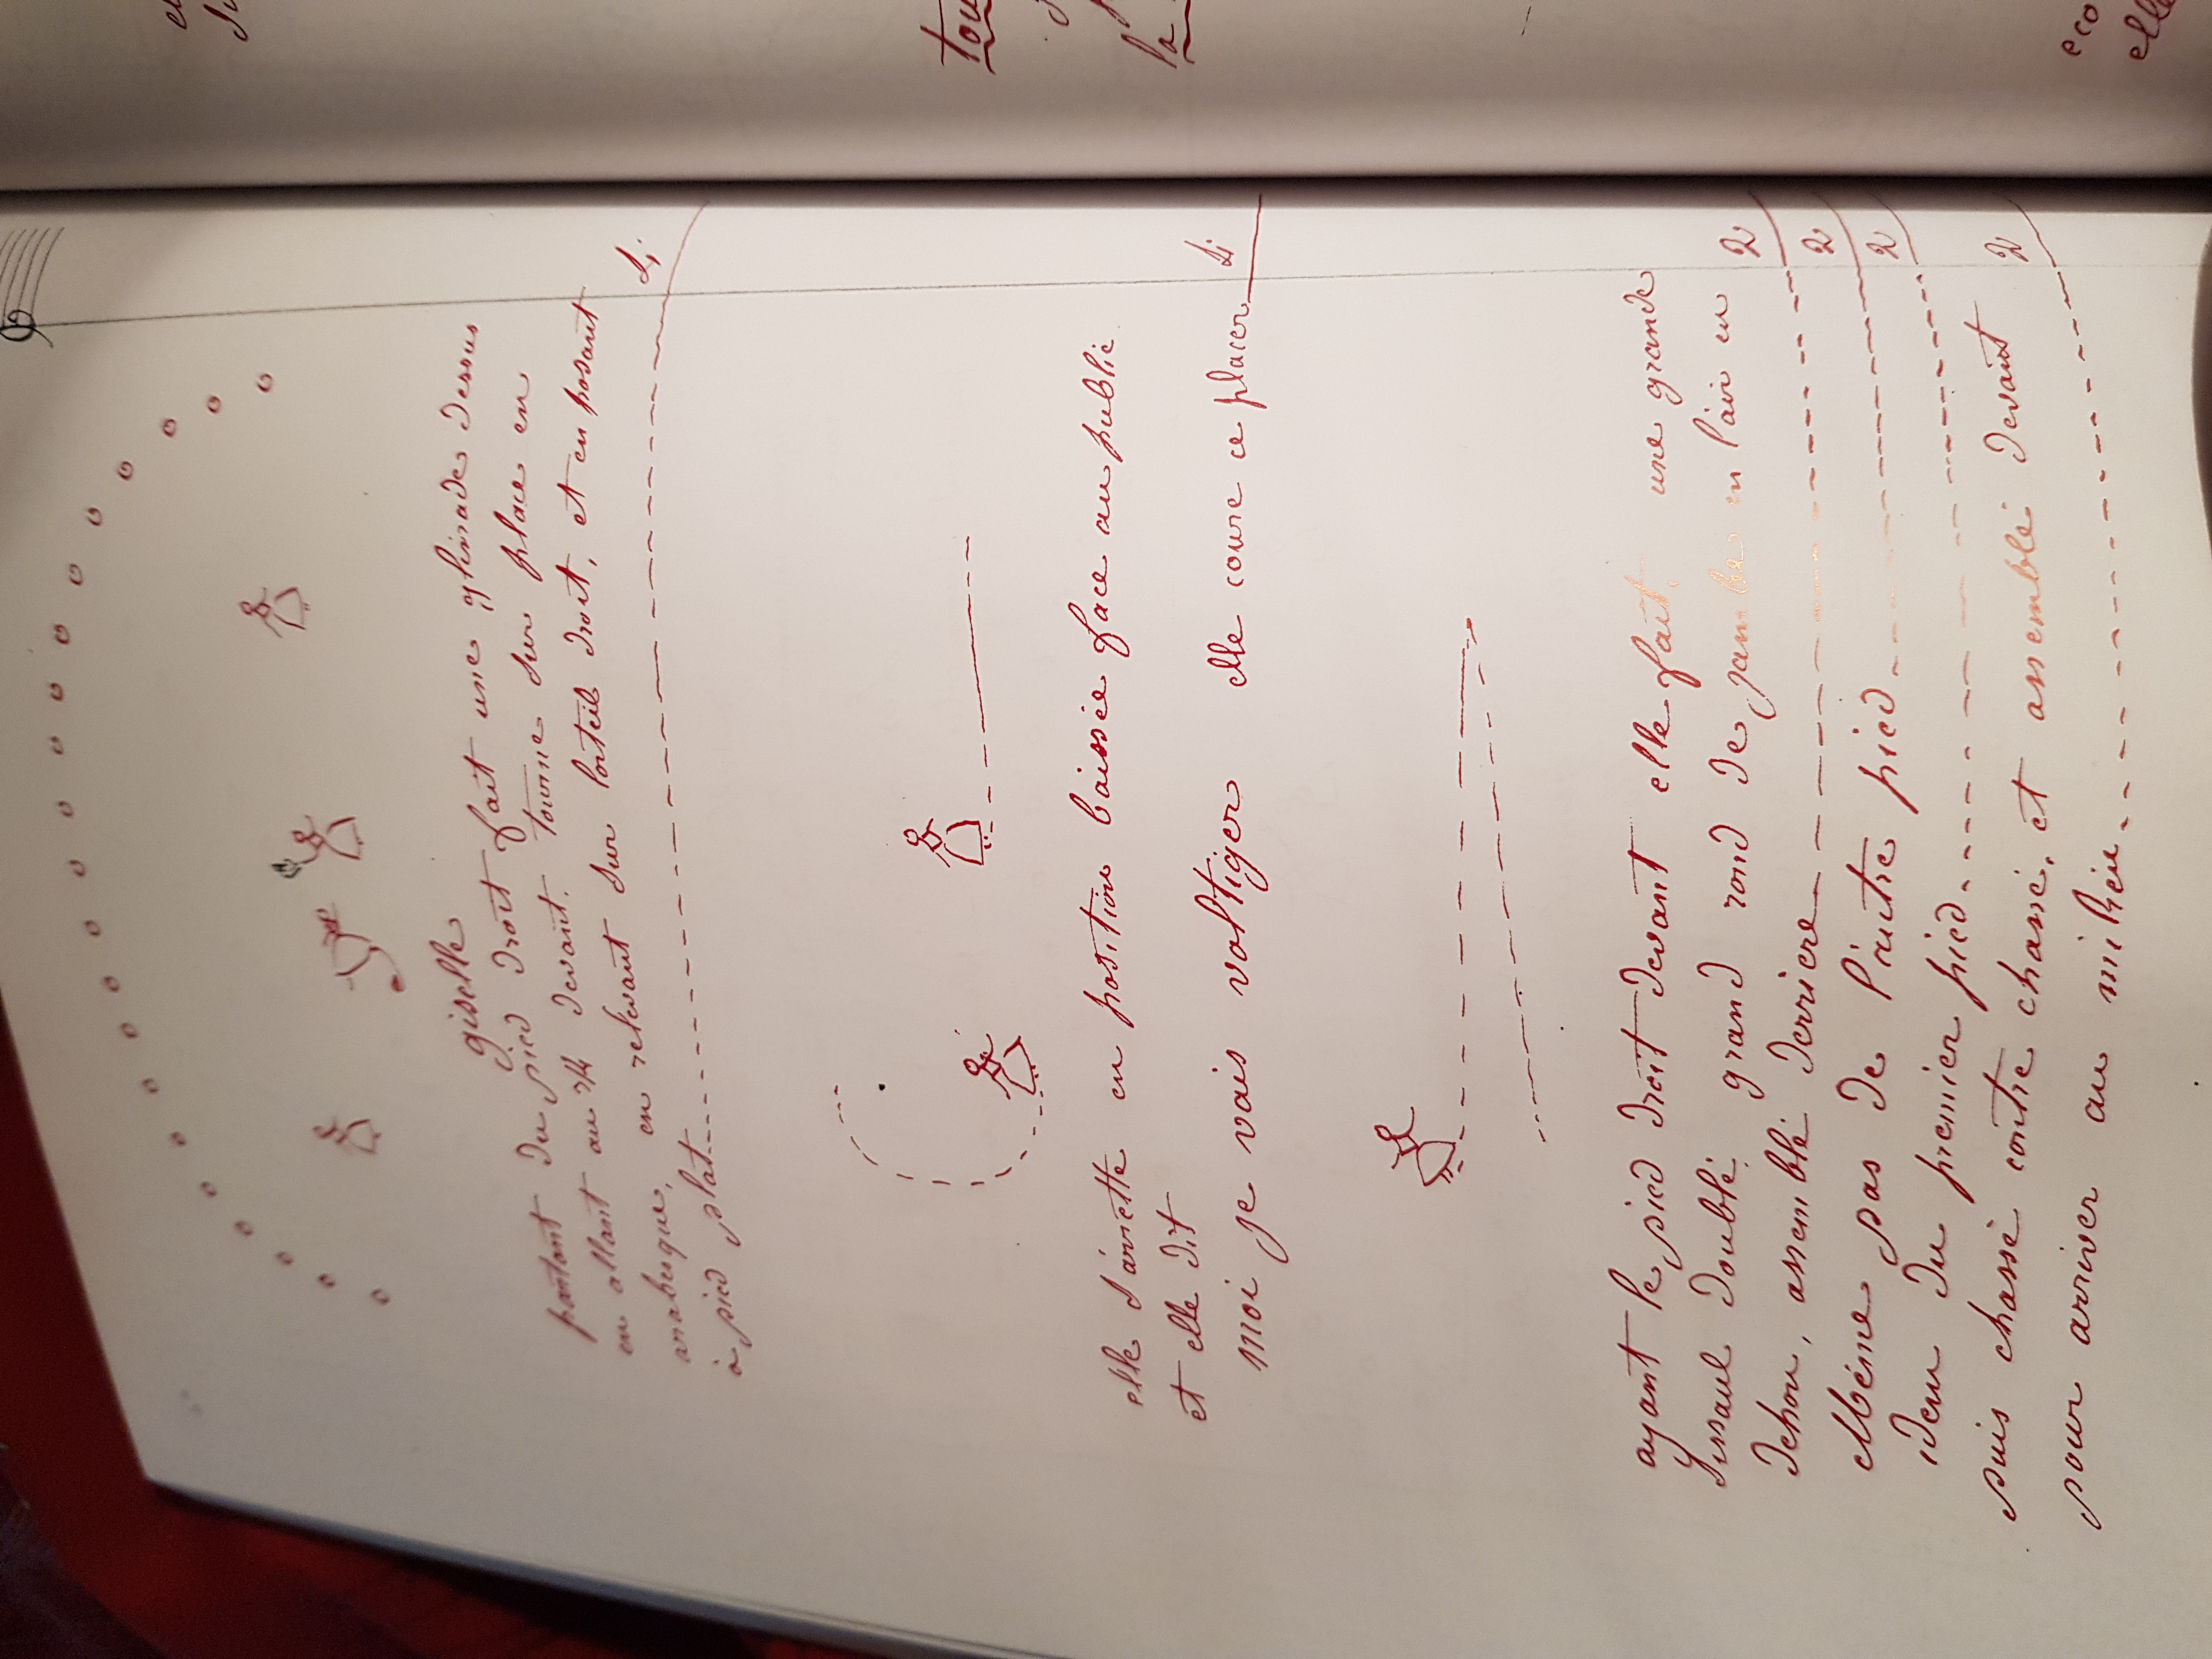 giselle
partant du pied droit fait une glissade dessus
en allant au 3/4 devant. tourne sur place en
arabesque, en relevant sur l'orteil droit, et en posant
à pied plat
4
elle s'arrette en position baissée face au public
et elle dit
moi je vais voltiger elle coure ce placer
4
ayant le pied droit devant elle fait, une grande
doublé, grand rond de jambe en l'air en
dehor, assemblé derriere
2
Même pas de l'autre pied
2
idem du premier pied
2
puis chassé contre chassé, et assemblé devant
pour arriver au milieu
2
tou
la
eco
elle